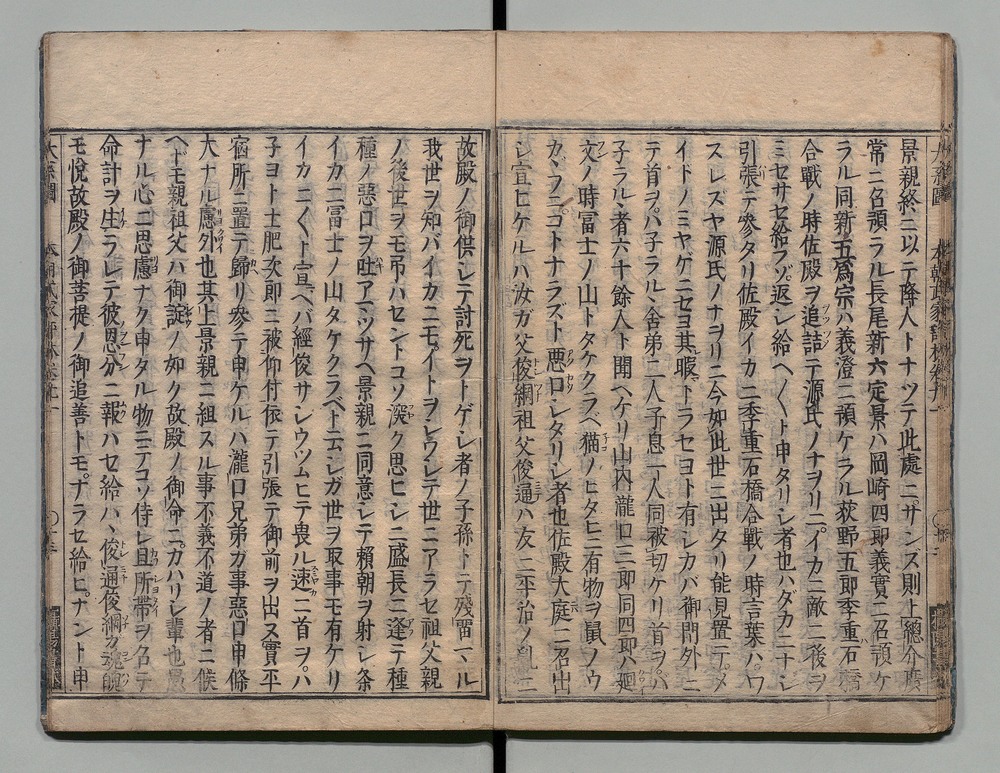 景親終ニ以テ降人トナツテ此處ニサンズ則上總介廣
常ニ召預ラル長尾新六定景ハ岡崎四郎義實ニ召預ケ
ラル同新五爲宗ハ義澄ニ預ケラル荻野五郎季重石橋
合戰ノ時佐殿ヲ追詰テ源氏ノナヲリニイカニ敵ニ後ヲ
ミセサセ給フゾ返シ給ヘ〱ト申タリシ者也ハダカニナシ
引張テ參タリ佐殿イカニ季重石橋合戰ノ時言葉ハワ
スレズヤ源氏ノナヲリニ今如此世ニ出タリ能見置テメ
イドノミヤゲニセヨ其暇トラセヨト有シカバ御門外ニ
テ首ヲハ子ラル舍弟二人子息一人同被切ケリ首ヲハ
子ラル者六十餘人ト聞ヘケリ山内瀧口三郎同四郎ハ廻
文ノ時冨士ノ山トタケクラベ猫ノヒタヒニ有物ヲ鼠ノウ
カヾフニコトナラズト悪口シタリシ者也佐殿大庭ニ召出
シ宣ヒケルハ汝ガ父俊綱祖父俊通ハ友ニ平治ノ乱ニ
故殿ノ御供シテ討死ヲトゲシ者ノ子孫トテ殘畱ヽル
我世ヲ知バイカニモイトヲシウシテ世ニアラセ祖父親
ノ後世ヲモ弔ハセントコソ深ク思ヒシニ盛長ニ逢テ種
種ノ惡口ヲ吐アマツサヘ景親ニ同意シテ頼朝ヲ射シ条
イカニ冨士ノ山タケクラベト云シガ世ヲ取事モ有ケリ
イカニ〱ト宣ヘバ經俊サシウツムヒテ畏ル速ニ首ヲハ
子ヨト土肥次郎ニ被仰付依テ引張テ御前ヲ出ス實平
宿所ニ置テ歸リ參テ申ケルハ瀧口兄弟ガ事惡口申條
大ナル慮外也其上景親ニ組スル事不義不道ノ者ニ候
ヘドモ親祖父ハ御諚ノ如ク故殿ノ御命ニカハリシ輩也
ナル心ニ思慮ナク申タル物ニテコソ侍レ且所帶ヲ召テ
命計ヲ生ラレテ彼恩分ニ報ハセ給ハヽ俊通俊綱ガ魂
モ悅故殿ノ御菩提ノ御追善トモナラセ給ヒナント申